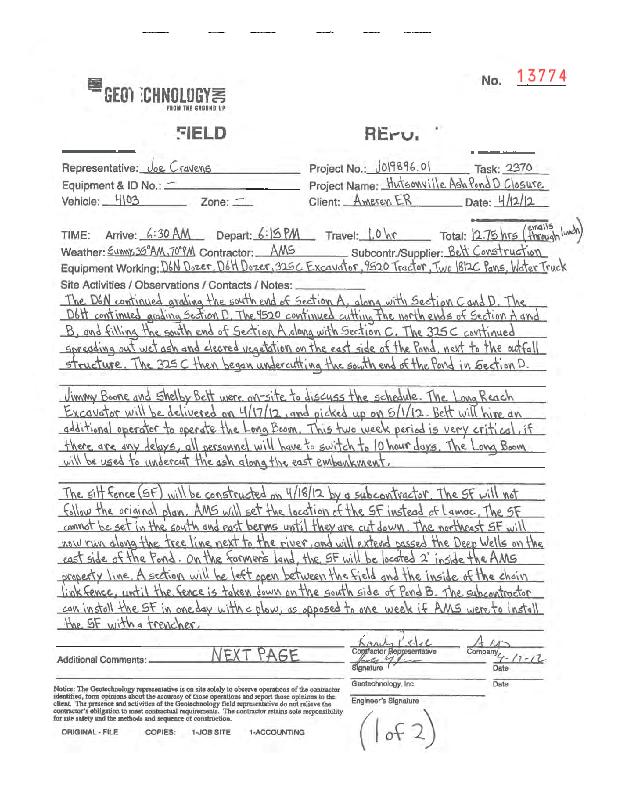 No. 13774
GEOTECHNOLOGY
FROM THE GROUND UP
FIELD REPO
Representative: Joe Cravens Project No.: J019896.01 Task: 2370
Equipment & ID No.: — Project Name: Hutsonville Ash Pond D Closure
Vehicle: 4103 Zone: — Client: Ameren ER Date: 4/12/12
TIME: Arrive: 6:30 AM Depart: 6:15 PM Travel: 1.0 hr Total: 12.75 hrs (emails through lunch)
Weather: Sunny, 35°AM, 70°PM Contractor: AMS Subcontr./Supplier: Bett Construction
Equipment Working: D6N Dozer, D6H Dozer, 325C Excavator, 9520 Tractor, Two 1812C Pans, Water Truck
Site Activities / Observations / Contacts / Notes:
The D6N continued grading the south end of Section A, along with Section C and D. The
D6H continued grading Section D. The 9520 continued cutting the north ends of Section A and
B, and filling the south end of Section A, along with Section C. The 325C continued
spreading out wet ash and cleared vegetation on the east side of the Pond, next to the outfall
structure. The 325C then began undercutting the south end of the Pond in Section D.
Jimmy Boone and Shelby Bett were on-site to discuss the schedule. The Long Reach
Excavator will be delivered on 4/17/12, and picked up on 5/1/12. Bett will hire an
additional operator to operate the Long Boom. This two week period is very critical, if
there are any delays, all personnel will have to switch to 10 hour days. The Long Boom
will be used to undercut the ash along the east embankment.
The silt fence (SF) will be constructed on 4/18/12 by a subcontractor. The SF will not
follow the original plan. AMS will set the location of the SF instead of Lamac. The SF
cannot be set in the south and east berms until they are cut down. The northeast SF will
now run along the tree line next to the river, and will extend passed the Deep Wells on the
east side of the Pond. On the farmer's land, the SF will be located 2' inside the AMS
property line. A section will be left open between the field and the inside of the chain
link fence, until the fence is taken down on the south side of Pond B. The subcontractor
can install the SF in one day with a plow, as opposed to one week if AMS were to install
the SF with a trencher.
Additional Comments: NEXT PAGE
Contractor Representative Company
Signature Date
Geotechnology, Inc. Date
Engineer's Signature
Notice: The Geotechnology representative is on site solely to observe operations of the contractor
identified, form opinions about the accuracy of those operations and report those opinions to the
client. The presence and activities of the Geotechnology field representative do not relieve the
contractor's obligation to meet contractual requirements. The contractor retains sole responsibility
for site safety and the methods and sequence of construction.
ORIGINAL - FILE COPIES: 1-JOB SITE 1-ACCOUNTING
(1 of 2)